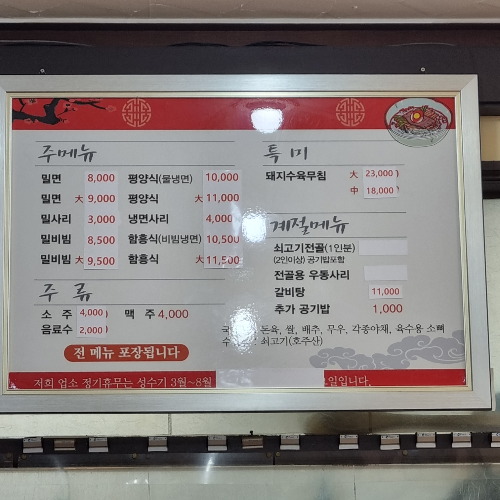 주메뉴
밀면 8,000 평양식(물냉면) 10,000
밀면 大 9,000 평양식 大 11,000
밀사리 3,000 냉면사리 4,000
밀비빔 8,500 함흥식(비빔냉면) 10,500
밀비빔 大 9,500 함흥식 大 11,500
주 류
소 주 4,000 맥 주 4,000
음료수 2,000
전 메뉴 포장됩니다
특 미
돼지수육무침 大 23,000
中 18,000
계절메뉴
쇠고기전골(1인분)
(2인이상) 공기밥포함
전골용 우동사리
갈비탕 11,000
추가 공기밥 1,000
돈육, 쌀, 배추, 무우, 각종야채, 육수용 소뼈
쇠고기(호주산)
저희 업소 정기휴무는 성수기 3월~8월 일입니다.